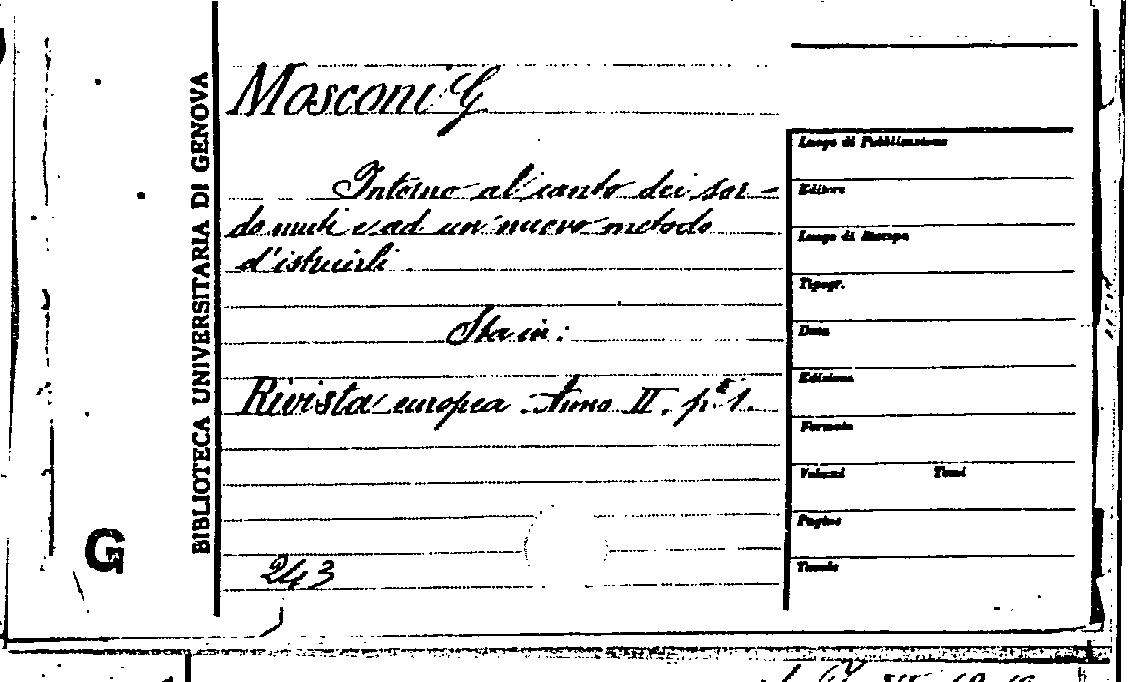 BIBLIOTECA UNIVERSITARIA DI GENOVA
G
Mosconi G
Intorno al canto dei sor-
do muti e ad un nuovo metodo
d'istruirli
Sta in:
Rivista europea. Anno II. pte 1.
243
Luogo di Pubblicazione
Editore
Luogo di Stampa
Tipogr.
Data
Edizione
Formato
Volumi Tomi
Pagine
Tavole